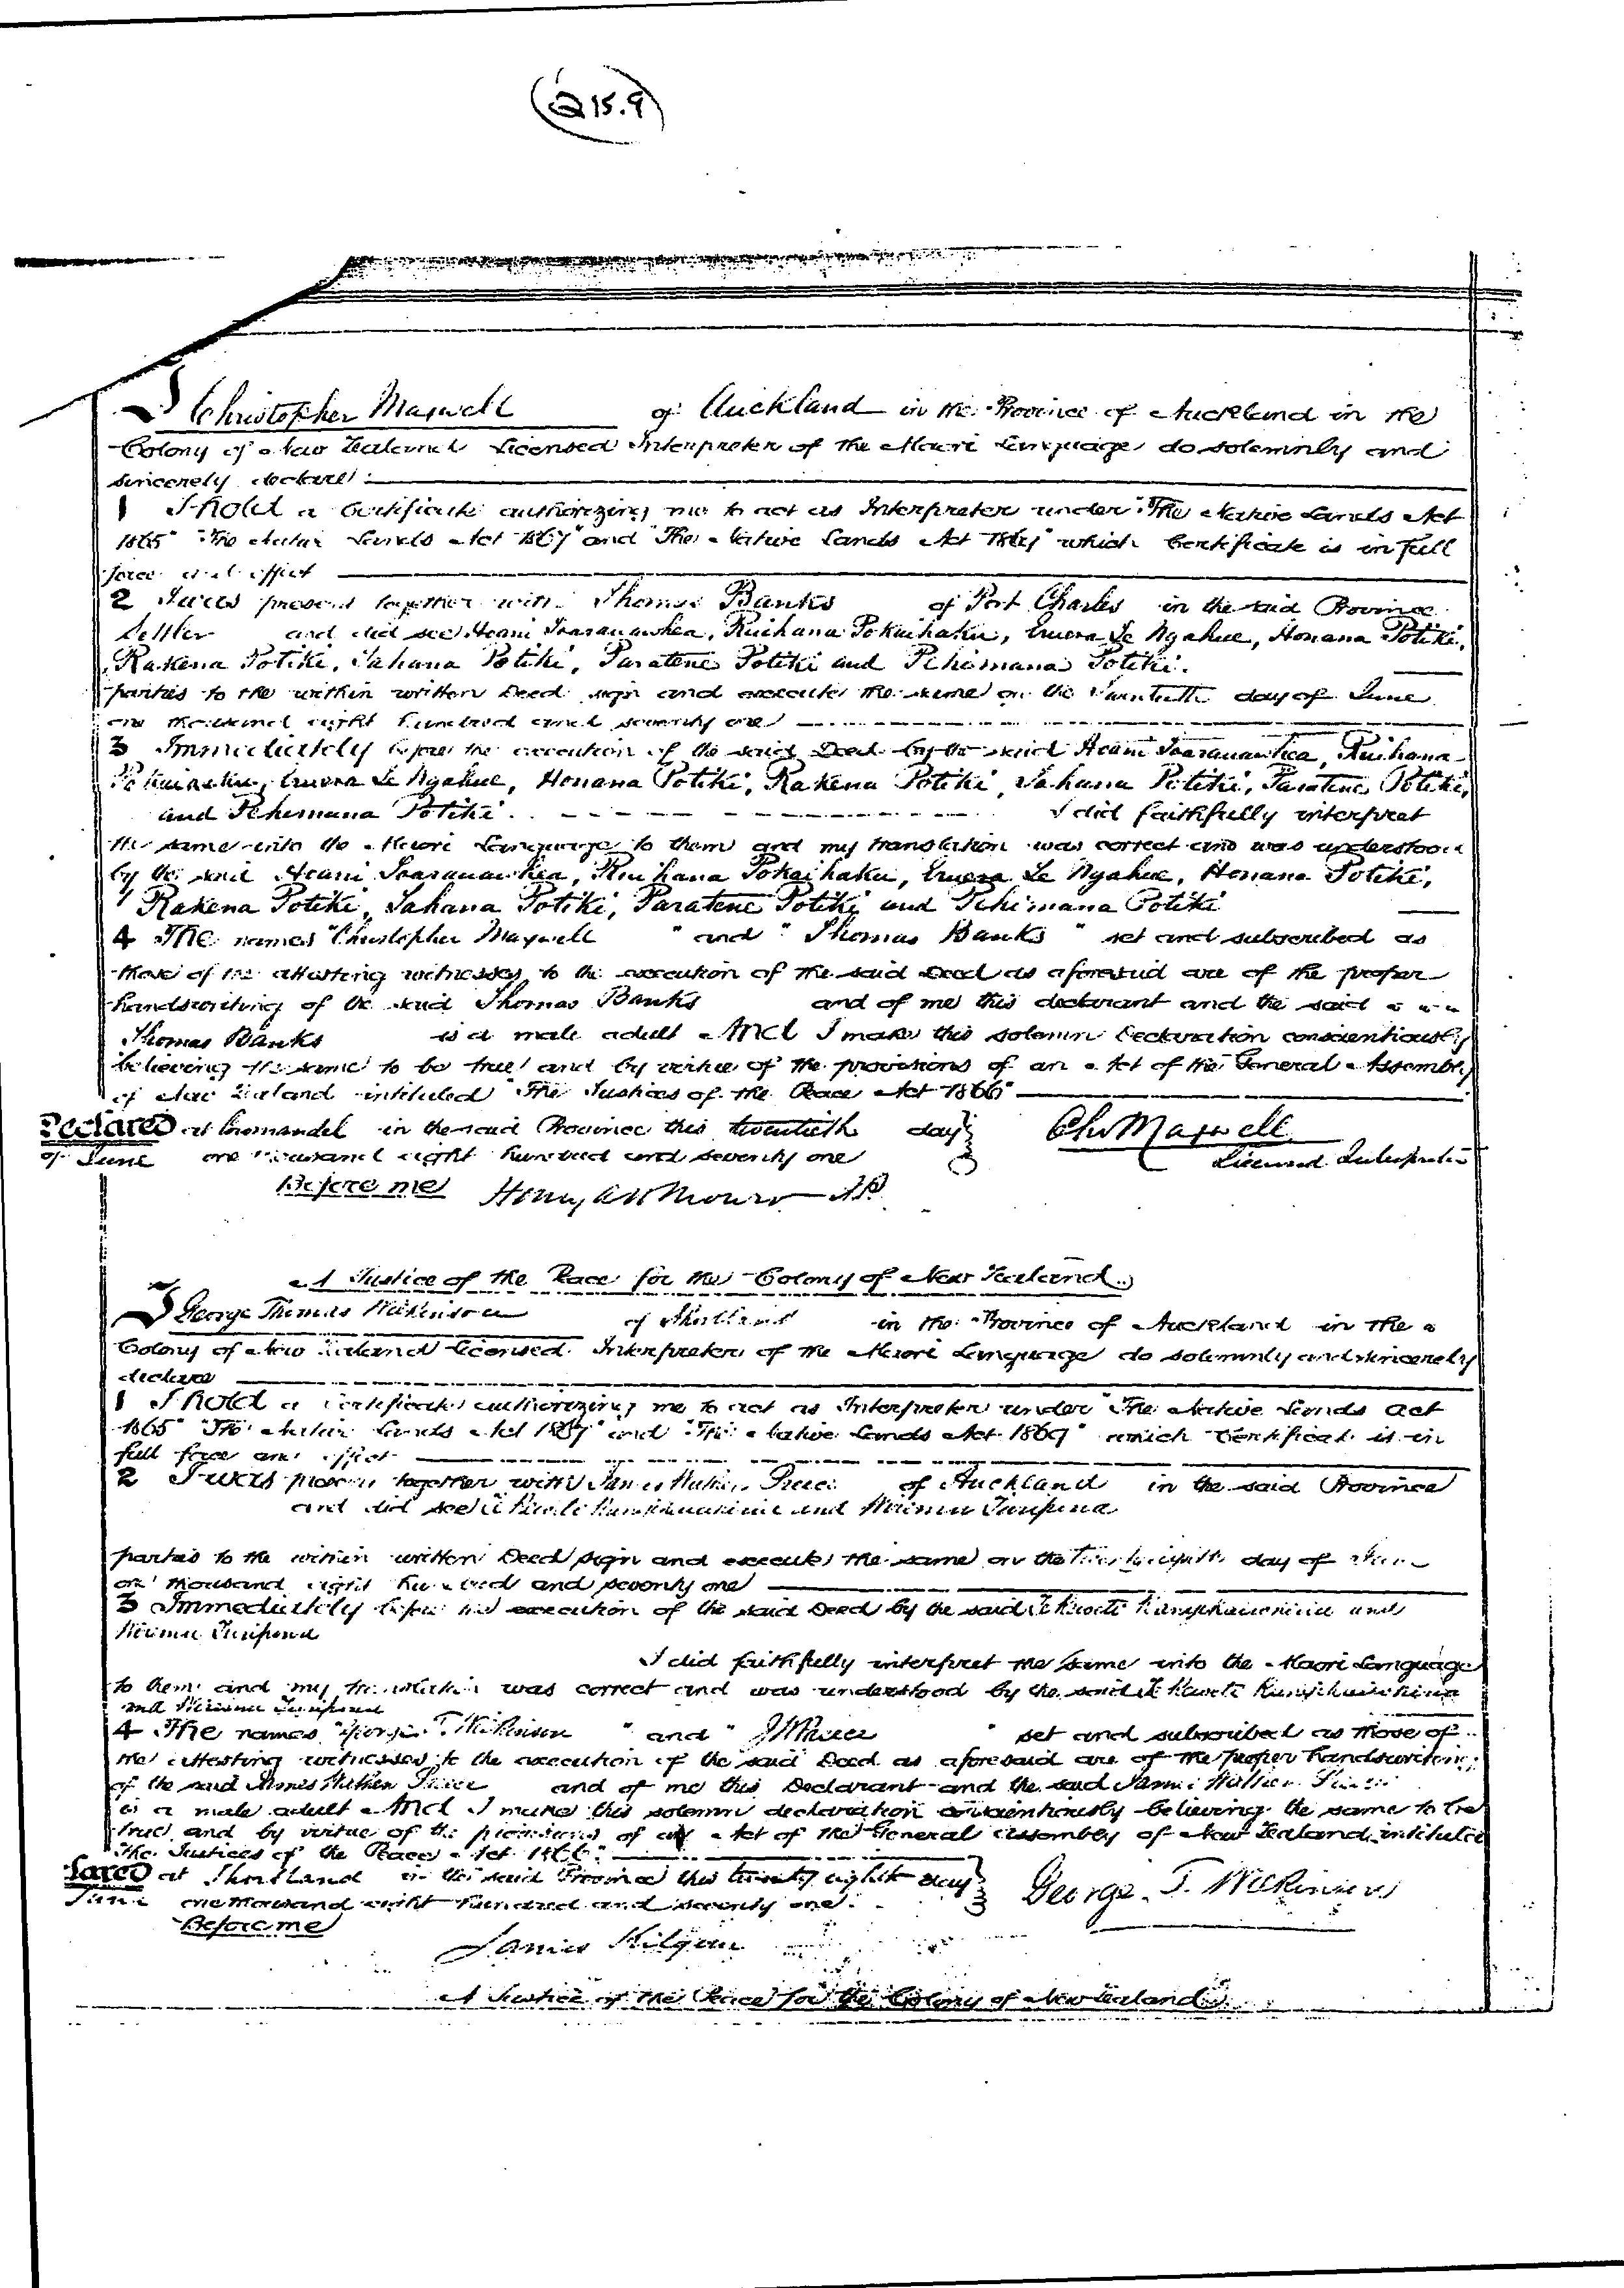 Q 15.9
I Christopher Maxwell of Auckland in the Province of Auckland in the
Colony of New Zealand Licensed Interpreter of the Maori Language do solemnly and
sincerely declare:
1 I hold a Certificate authorizing me to act as Interpreter under "The Native Lands Act
1865" "The Native Lands Act 1867" and "The Native Lands Act 1869" which Certificate is in full
force and effect
2 I was present together with Thomas Banks of Port Charles in the said Province
Settler and did see Hoani Ruihana Pokaihaku, Eruera Te Ngahue, Honana Potiki,
Rakena Potiki, Tahana Potiki, Paratene Potiki and Pehimana Potiki.
parties to the within written Deed sign and execute the same on the Twentieth day of June
one thousand eight hundred and seventy one
3 Immediately before the execution of the said Deed by the said Hoani Ruihana
Pokaihaku, Eruera Te Ngahue, Honana Potiki, Rakena Potiki, Tahana Potiki, Paratene Potiki,
and Pehimana Potiki. I did faithfully interpret
the same into the Maori Language to them and my translation was correct and was understood
by the said Hoani Ruihana Pokaihaku, Eruera Te Ngahue, Honana Potiki,
Rakena Potiki, Tahana Potiki, Paratene Potiki and Pehimana Potiki
4 The names "Christopher Maxwell" and "Thomas Banks" set and subscribed as
those of the attesting witnesses to the execution of the said Deed as aforesaid are of the proper
handswriting of the said Thomas Banks and of me this declarant and the said
Thomas Banks is a male adult And I make this solemn Declaration conscientiously
believing the same to be true and by virtue of the provisions of an Act of the General Assembly
of New Zealand intituled "The Justices of the Peace Act 1866"
Declared at Coromandel in the said Province this twentieth day
of June one thousand eight hundred and seventy one
Chr Maxwell
Licensed Interpreter
Before me Henry Monro JP.
A Justice of the Peace for the Colony of New Zealand.
I George Thomas Wilkinson of Shortland in the Province of Auckland in the
Colony of New Zealand Licensed Interpreter of the Maori Language do solemnly and sincerely
declare
1 I hold a Certificate authorizing me to act as Interpreter under "The Native Lands Act
1865" "The Native Lands Act 1867" and "The Native Lands Act 1869" which Certificate is in
full force and effect
2 I was present together with James Mathew Price of Auckland in the said Province
and did see and
parties to the within written Deed sign and execute the same on the Twenty eighth day of June
one thousand eight hundred and seventy one
3 Immediately before the execution of the said Deed by the said and
I did faithfully interpret the same into the Maori Language
to them and my translation was correct and was understood by the said
and
4 The names "George T. Wilkinson" and set and subscribed as those of
the attesting witnesses to the execution of the said Deed as aforesaid are of the proper handswriting
of the said James Price and of me this Declarant and the said James
is a male adult And I make this solemn declaration conscientiously believing the same to be
true and by virtue of the provisions of an Act of the General Assembly of New Zealand intituled
"The Justices of the Peace Act 1866."
lared at Shortland in the said Province this twenty eighth day
June one thousand eight hundred and seventy one.
George. T. Wilkinson
Before me
James Kilgour
A Justice of the Peace for the Colony of New Zealand.